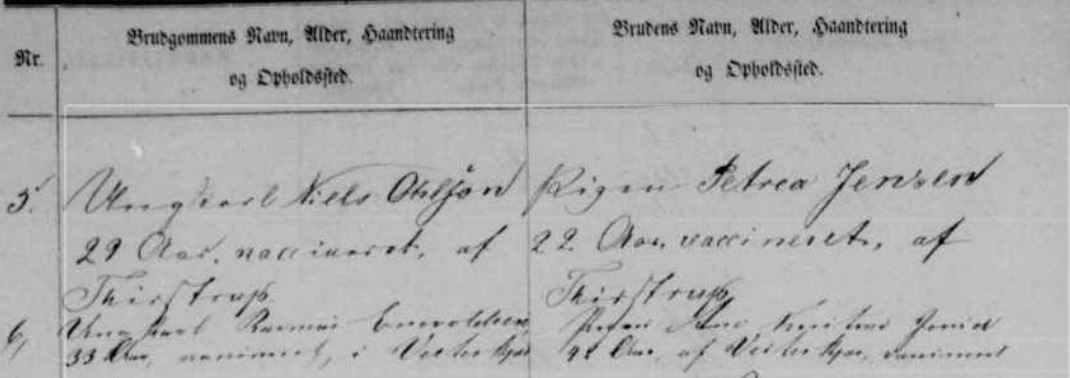 Nr.
Brudgommens Navn, Alder, Haandtering
og Opholdssted.
Brudens Navn, Alder, Haandtering
og Opholdssted.
5.
Ungkarl Niels Ohlson
29 Aar, vaccineret, af
Thirstrup
Pigen Petrea Jensen
22 Aar, vaccineret, af
Thirstrup
6,
Ungkarl Rasmus
33 Aar, vaccineret, i Vesterkjær
Pigen Ane
Aar, af Vesterkjær, vaccineret